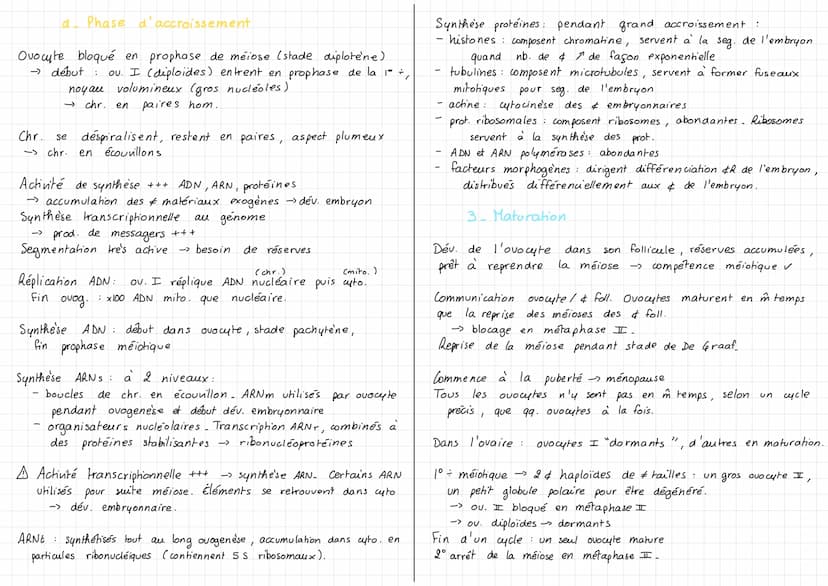 a_ Phase d'accroissement
Ovocyte bloqué en prophase de méiose (stade diplotène)
→ début : ov. I (diploïdes) entrent en prophase de la 1re ÷,
noyau volumineux (gros nucléoles)
→ chr. en paires hom.
Chr. se déspiralisent, restent en paires, aspect plumeux
→ chr. en écouvillons
Activité de synthèse +++ ADN, ARN, protéines
→ accumulation des ≠ matériaux exogènes → dév. embryon
Synthèse transcriptionnelle au génome
→ prod. de messagers +++
Segmentation très active → besoin de réserves
(chr.) (mito.)
Réplication ADN : ov. I réplique ADN nucléaire puis cyto.
Fin ovog. : x100 ADN mito. que nucléaire.
Synthèse ADN : début dans ovocyte, stade pachytène,
fin prophase méiotique
Synthèse ARNs : à 2 niveaux :
- boucles de chr. en écouvillon_ ARNm utilisés par ovocyte
pendant ovogenèse et début dév. embryonnaire
- organisateurs nucléolaires_ Transcription ARNr, combinés à
des protéines stabilisantes → ribonucléoprotéines
⚠ Activité transcriptionnelle +++ → synthèse ARN_ Certains ARN
utilisés pour suite méiose. Éléments se retrouvent dans cyto
→ dév. embryonnaire.
ARNt : synthétisés tout au long ovogenèse, accumulation dans cyto. en
particules ribonucléiques (contiennent 5 S ribosomaux).
Synthèse protéines : pendant grand accroissement :
- histones : composent chromatine, servent à la seg. de l'embryon
quand nb. de ¢ ↗ de façon exponentielle
- tubulines : composent microtubules, servent à former fuseaux
mitotiques pour seg. de l'embryon
- actine : cytocinèse des ¢ embryonnaires
- prot. ribosomales : composent ribosomes, abondantes_ Ribosomes
servent à la synthèse des prot.
- ADN et ARN polymérases : abondantes
- facteurs morphogènes : dirigent différenciation ¢R de l'embryon,
distribués différentiellement aux ¢ de l'embryon.
3_ Maturation
Dév. de l'ovocyte dans son follicule, réserves accumulées,
prêt à reprendre la méiose → compétence méiotique ✓
Communication ovocyte / ¢ foll. Ovocytes maturent en m̂ temps
que la reprise des méioses des ¢ foll.
→ blocage en métaphase II_
Reprise de la méiose pendant stade de De Graaf_
Commence à la puberté → ménopause
Tous les ovocytes n'y sont pas en m̂ temps, selon un cycle
précis, que qq. ovocytes à la fois.
Dans l'ovaire : ovocytes I "dormants", d'autres en maturation.
1° ÷ méiotique → 2 ¢ haploïdes de ≠ tailles : un gros ovocyte II,
un petit globule polaire pour être dégénéré.
→ ov. II bloqué en métaphase II
→ ov. diploïdes → dormants
Fin d'un cycle : un seul ovocyte mature
2° arrêt de la méiose en métaphase II_